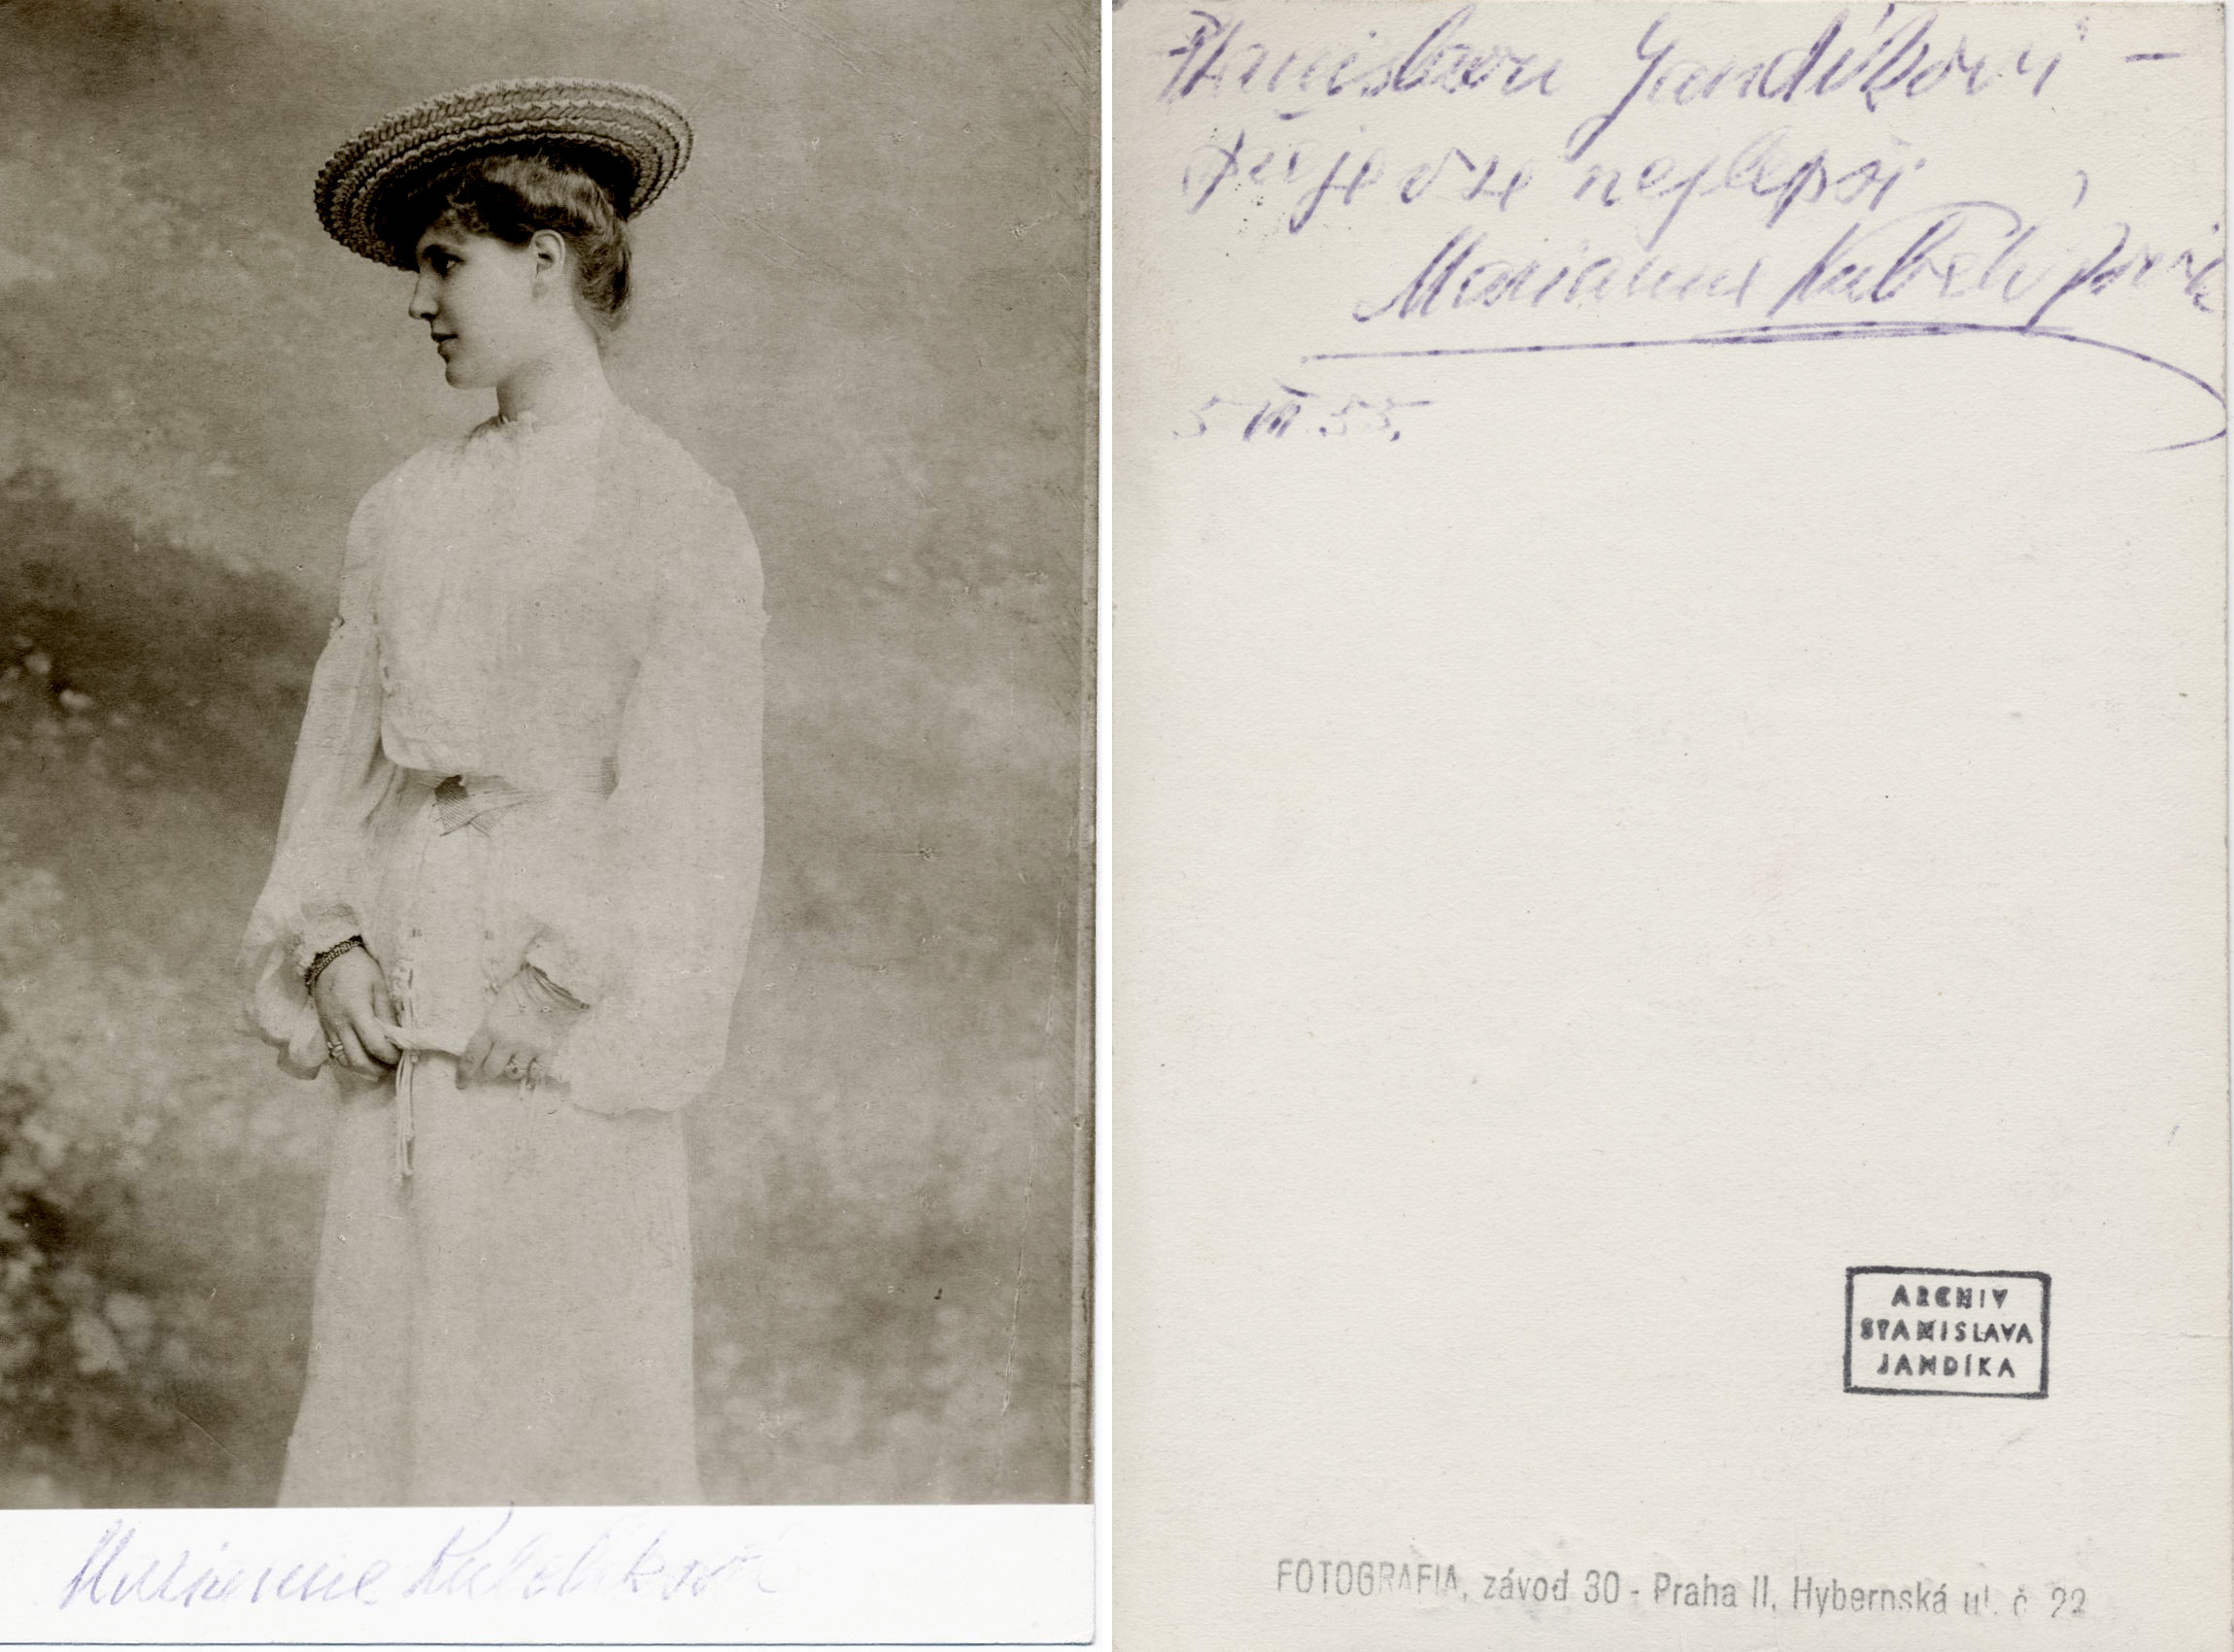 Marianne Kubelíková
Stanislavu Jandíkovi –
přeje vše nejlepší
Marianne Kubelíková
5 VII 55.
ARCHIV
STANISLAVA
JANDÍKA
FOTOGRAFIA, závod 30 - Praha II, Hybernská ul. č 22